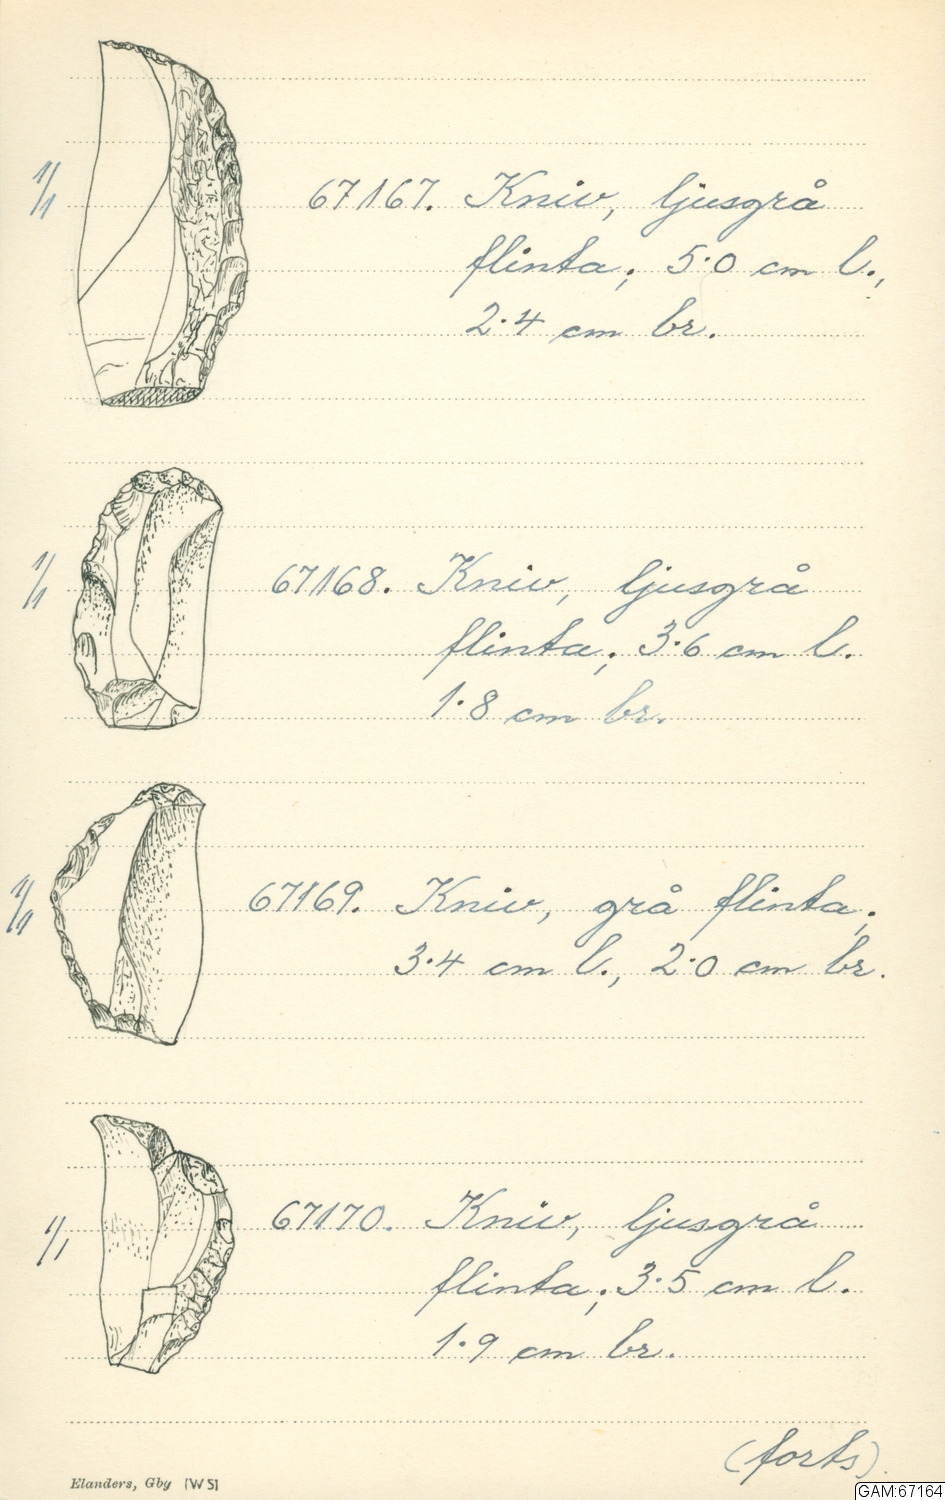 1/1
67167. Kniv, ljusgrå
flinta; 5·0 cm l.,
2·4 cm br.
1/1
67168. Kniv, ljusgrå
flinta; 3·6 cm l.
1·8 cm br.
1/1
67169. Kniv, grå flinta;
3·4 cm l., 2·0 cm br.
1/1
67170. Kniv, ljusgrå
flinta; 3·5 cm l.
1·9 cm br.
(forts).
Elanders, Gby [W5]
GAM:67164